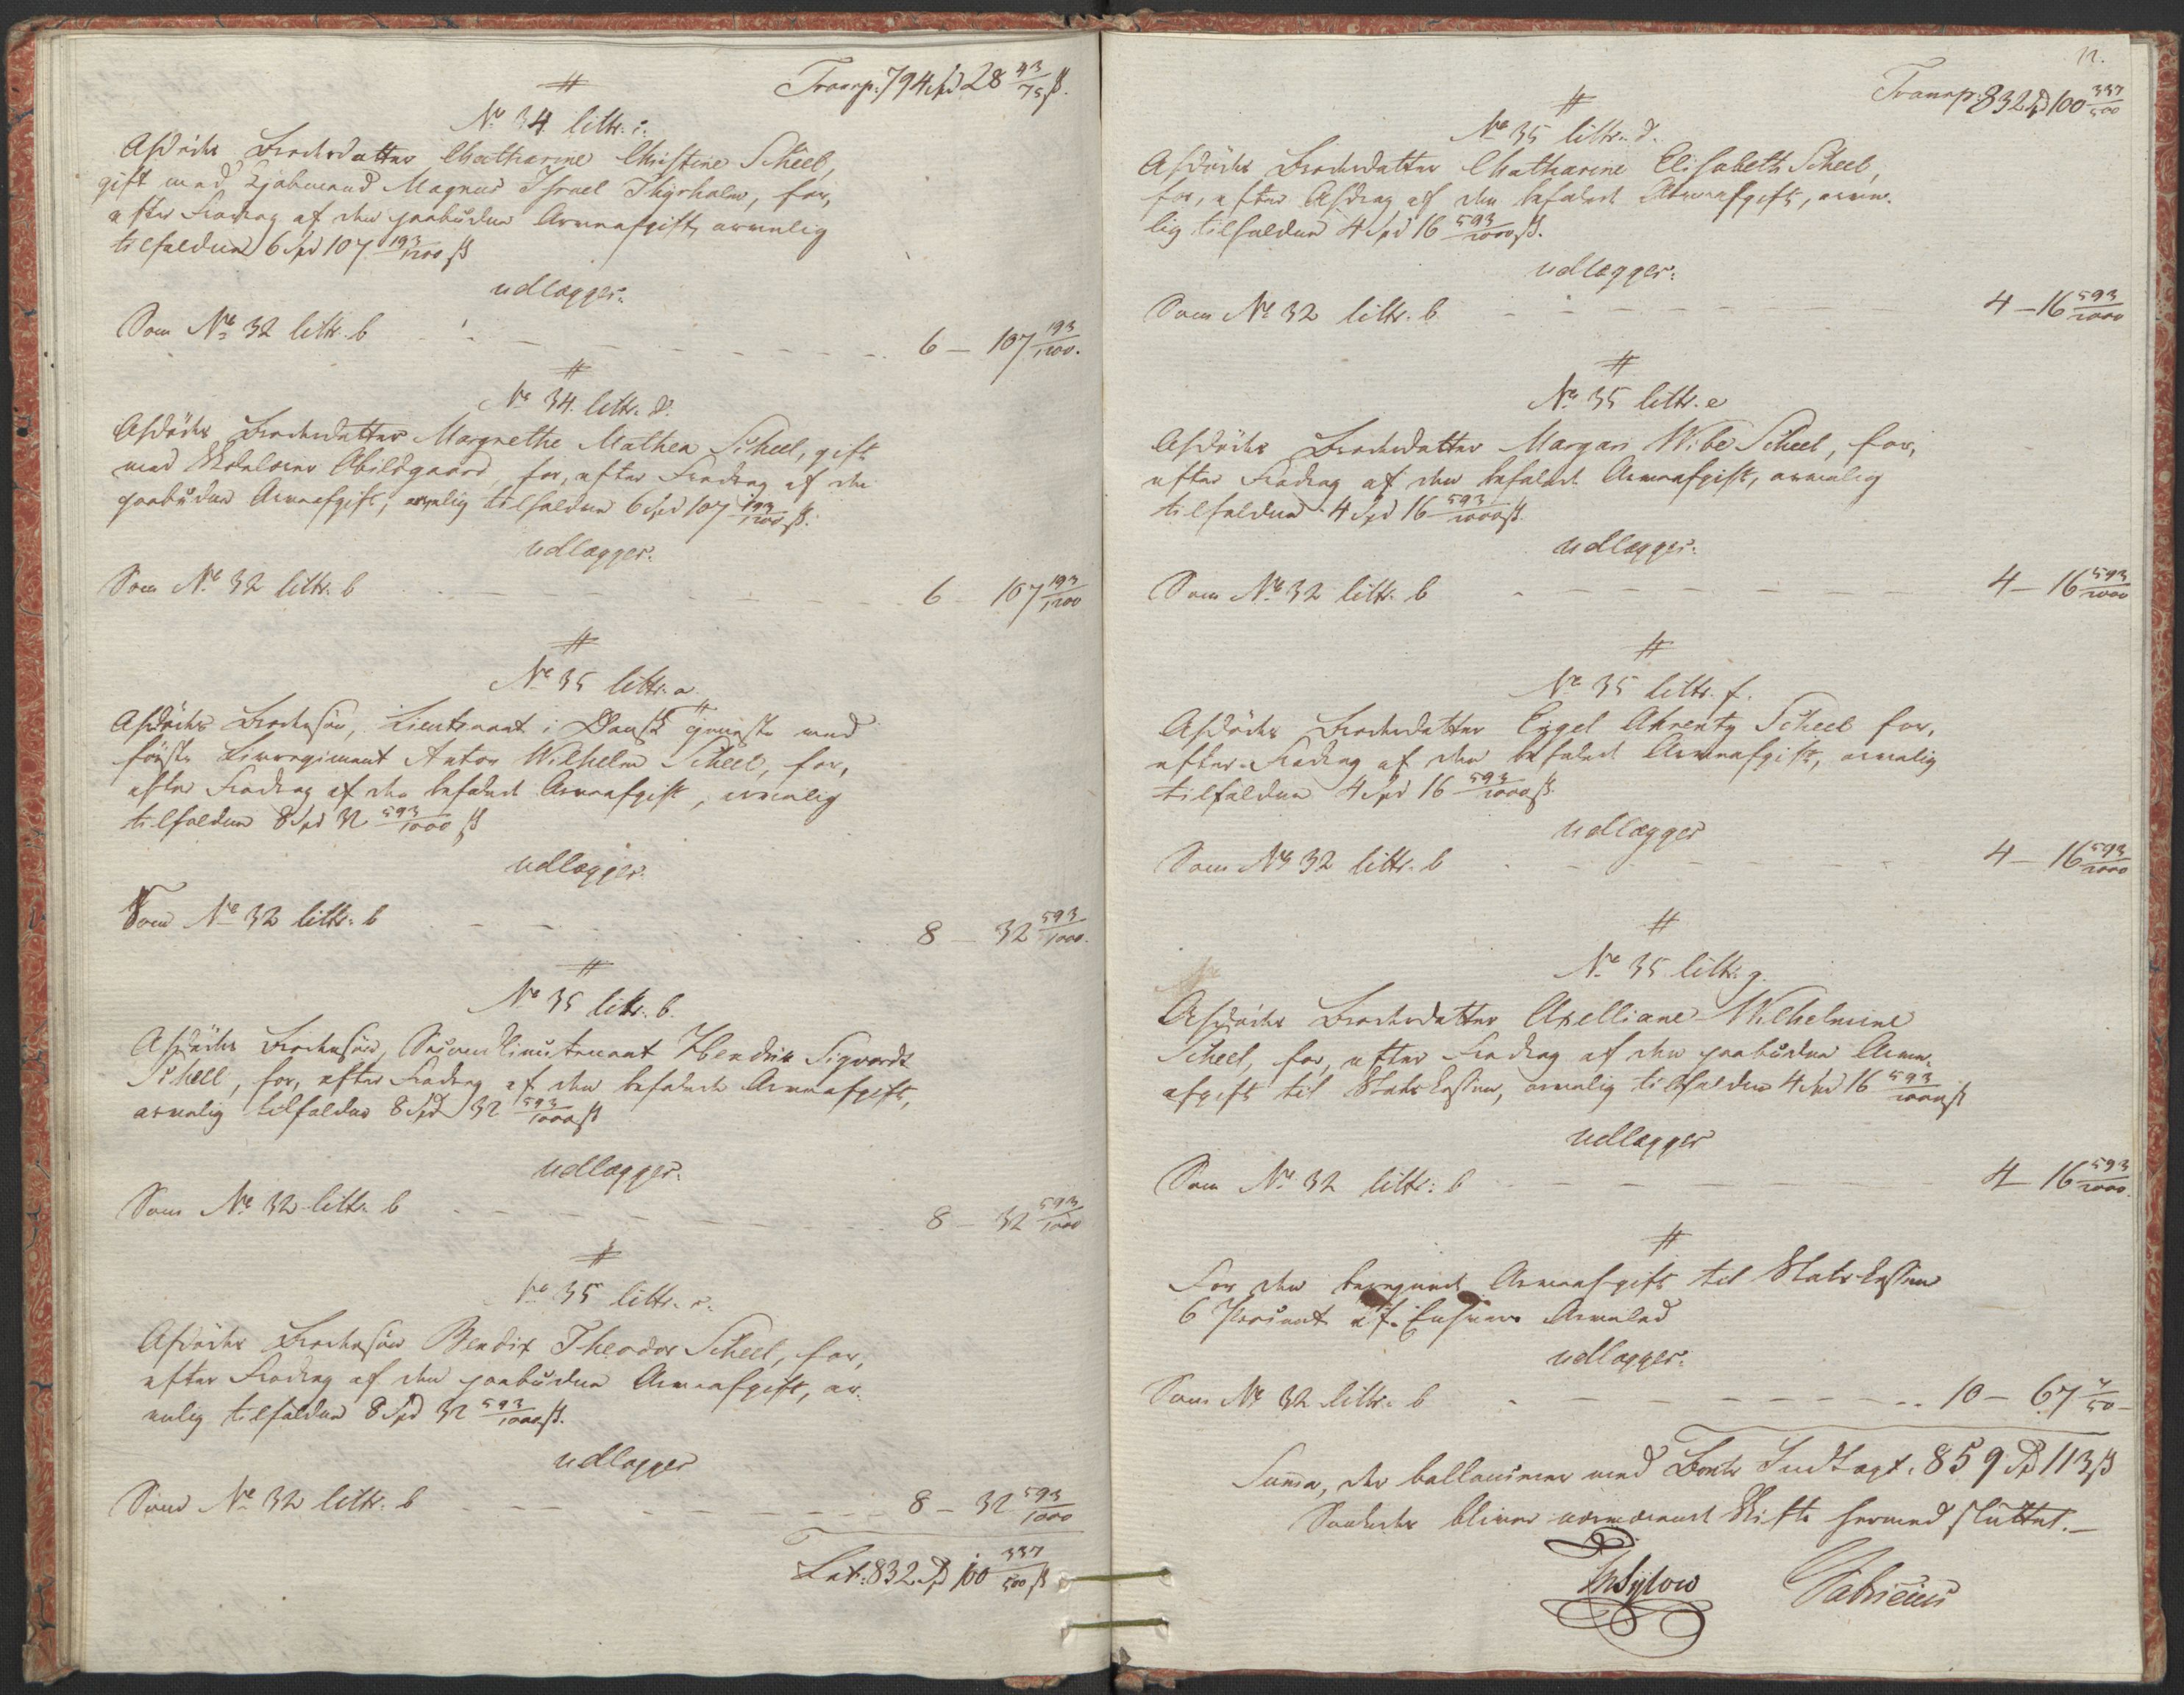 Transp: 794 Spd 28 43/75 ß.
#
No 34. littr. c.
Afdødes Broderdatter Chatharine Christine Scheel,
gift med Kjøbmand Magnus Israel Thyrholm, for,
efter Fradrag af den paabudne Arveafgift, arvelig
tilfalden 6 Spd 107 193/1200 ß
udlægges:
Som No 32 littr. b - - - 6 - 107 193/1200.
#
No 34. littr. d.
Afdødes Broderdatter Margrethe Mathea Scheel, gift
med Abildgaard, for, efter Fradrag af den
paabudne Arveafgift, arvelig tilfalden 6 Spd 107 193/1200 ß.
udlægges:
Som No 32 littr. b - - - 6 - 107 193/1200
#
No 35 littr. a.
Afdødes Brodersøn, Lieutenant i Dansk Tjeneste ved
første Livregiment Anton Wilhelm Scheel, for,
efter Fradrag af den befalede Arveafgift, arvelig
tilfalden 8 Spd 32 593/1000 ß
udlægges:
Som No 32 littr. b - - - 8 - 32 593/1000.
#
No 35 littr. b.
Afdødes Brodersøn, Secondlieutenant Hendrik Sigvardt
Scheel, for, efter Fradrag af den befalede Arveafgift,
arvelig tilfalden 8 Spd 32 593/1000 ß
udlægges:
Som No 32 littr. b - - - 8 - 32 593/1000
#
No 35 littr. c.
Afdødes Brodersøn Bendix Theodor Scheel, for,
efter Fradrag af den paabudne Arveafgift, ar-
velig tilfalden 8 Spd 32 593/1000 ß.
udlægges
Som No 32 littr. b - - - 8 - 32 593/1000
Lat: 832 Spd 100 337/500 ß
12.
Transp: 832 Spd 100 337/500
#
No 35 littr. d.
Afdødes Broderdatter Chatharine Elisabeth Scheel,
for, efter Afdrag af den befalede Arveafgift, arve-
lig tilfalden 4 Spd 16 593/2000 ß.
udlægges:
Som No 32 littr. b - - - 4 - 16 593/2000
#
No 35 littr. e
Afdødes Broderdatter Margan Wibe Scheel, for,
efter Fradrag af den befalede Arveafgift, arvelig
tilfalden 4 Spd 16 593/2000 ß.
udlægges:
Som No 32 littr. b - - - 4 - 16 593/2000
#
No 35 littr. f.
Afdødes Broderdatter Engel Ahrentz Scheel for,
efter Fradrag af den befalede Arveafgift, arvelig
tilfalden 4 Spd 16 593/2000 ß.
udlægges
Som No 32 littr. b - - - 4 - 16 593/2000
#
No 35 littr. g.
Afdødes Broderdatter Axelliane Wilhelmine
Scheel, for, efter Fradrag af den paabudne Arve-
afgift til Statskassen, arvelig tilfalden 4 Spd 16 593/2000 ß
udlægges
Som No 32 littr. b - - - 4 - 16 593/2000.
#
For den beregnede Arveafgift til Statskassen
6 Procent af Arvelod
udlægges:
Som No 32 littr. b - - - 10 - 67 7/50 -
Summa, der ballancerer med Boets Indtægt: 859 Spd 113 ß
Saaledes bliver nærværende Skifte hermed sluttet. -
Sylow Fabricius